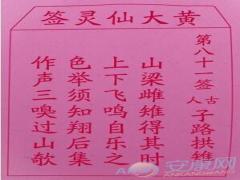 黄大仙灵签
第八十一签
古人 子路拱雉
山梁雌雉得其时
上下飞鸣自乐之
色举须知翔后集
作声三嗅过山歌